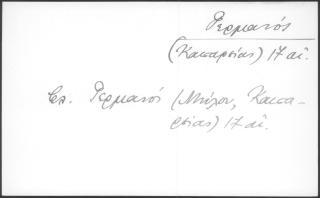 Γερμανός
(Καισαρείας) 17 αἰ.
Βλ. Γερμανός (Μπύλου, Καισα-
ρείας) 17 αἰ.